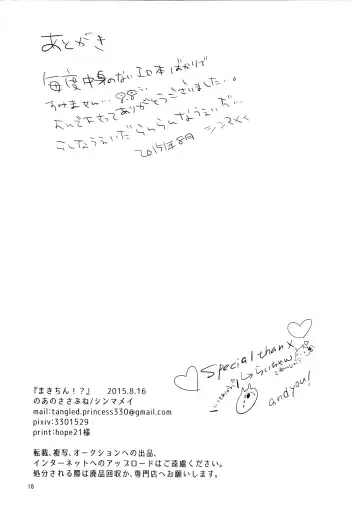 あとがき
毎度中身のないエロ本ばかりで
すみません…
よんで下さってありがとうございました…。
2015年8月 シンマメイ
Special thanx
and you!
『まきちん!?』 2015.8.16
のあのささぶね/シンマメイ
mail:tangled.princess330@gmail.com
pixiv:3301529
print:hope21様
転載、複写、オークションへの出品、
インターネットへのアップロードはご遠慮ください。
処分される際は廃品回収か、専門店へお願いします。
18